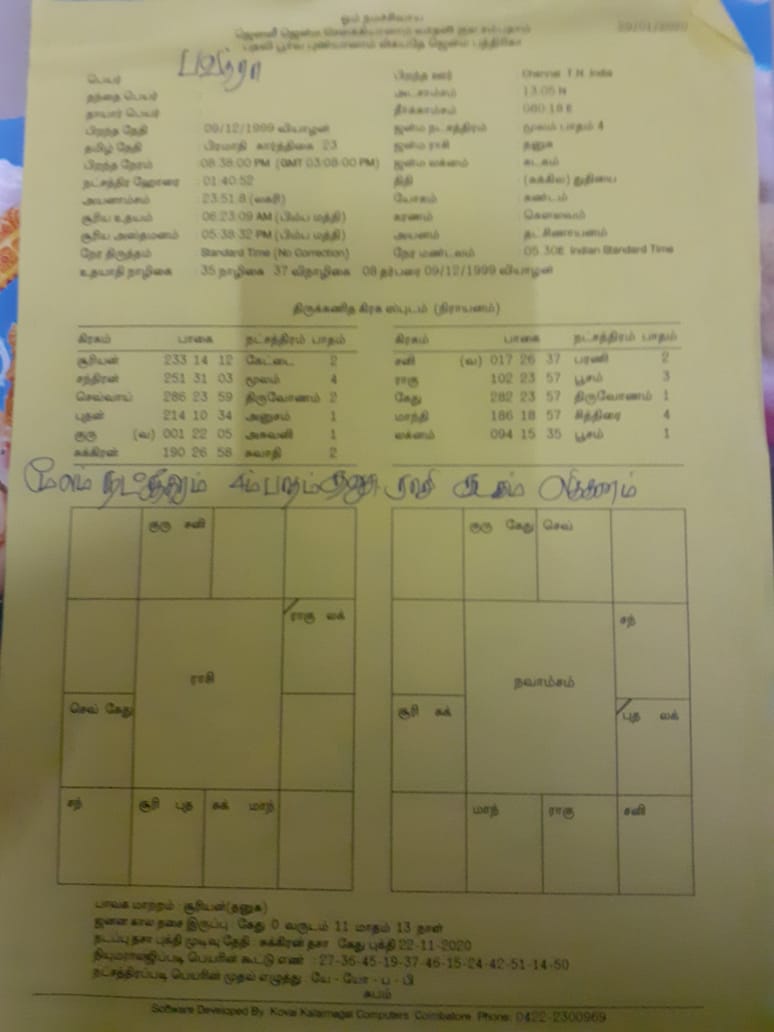 ஓம் நமச்சிவாய
ஜெனனீ ஜென்ம சௌக்கியானாம் வர்தனி குல சம்பதாம்
பதவி பூர்வ புண்யானாம் லிக்யதே ஜென்ம பத்திரிகா
பவித்ரா
பெயர் பிறந்த ஊர் Chennai T.N. India
தந்தை பெயர் : அட்சாம்சம் 13.05 N
தாயார் பெயர் : தீர்க்காம்சம் 080.18 E
பிறந்த தேதி : 09/12/1999 வியாழன் ஜன்ம நட்சத்திரம் மூலம் பாதம் 4
தமிழ் தேதி : பிரமாதி கார்த்திகை 23 ஜன்ம ராசி தனுசு
பிறந்த நேரம் : 08:38:00 PM (GMT 03:08:00 PM) ஜன்ம லக்னம் கடகம்
நட்சத்திர ஹோரை : 01:40:52 திதி (சுக்கில) துதியை
அயனாம்சம் : 23:51:8 (லகரி) யோகம் கண்டம்
சூரிய உதயம் : 06:23:09 AM (பிம்ப மத்தி) கரணம் கௌலவம்
சூரிய அஸ்தமனம் : 05:38:32 PM (பிம்ப மத்தி) அயனம் தட்சிணாயனம்
நேர திருத்தம் Standard Time (No Correction) நேர மண்டலம் 05.30E Indian Standard Time
உதயாதி நாழிகை : 35 நாழிகை 37 விநாழிகை 08 தற்பரை 09/12/1999 வியாழன்
திருக்கணித கிரக ஸ்புடம் (நிராயனம்)
கிரகம் பாகை நட்சத்திரம் பாதம் கிரகம் பாகை நட்சத்திரம் பாதம்
சூரியன் 233 14 12 கேட்டை 2 சனி (வ) 017 26 37 பரணி 2
சந்திரன் 251 31 03 மூலம் 4 ராகு 102 23 57 பூசம் 3
செவ்வாய் 286 23 59 திருவோணம் 2 கேது 282 23 57 திருவோணம் 1
புதன் 214 10 34 அனுசம் 1 மாந்தி 186 18 57 சித்திரை 4
குரு (வ) 001 22 05 அசுவனி 1 லக்னம் 094 15 35 பூசம் 1
சுக்கிரன் 190 26 58 சுவாதி 2
மூலம் நட்சத்திரம் 4ம் பாதம் தனுசு ராசி கடகம் லக்னம்
குரு சனி குரு கேது செவ்
ராகு லக் சந்
ராசி நவாம்சம்
செவ் கேது சூரி சுக் புத லக்
சந் சூரி புத சுக் மாந் மாந் ராகு சனி
பாவக மாற்றம் : சூரியன்(தனுசு)
ஜனன கால தசை இருப்பு : கேது 0 வருடம் 11 மாதம் 13 நாள்
நடப்பு தசா புக்தி முடிவு தேதி : சுக்கிரன் தசா கேது புக்தி 22-11-2020
நியுமராலஜிப்படி பெயரின் கூட்டு எண் : 27-36-45-19-37-46-15-24-42-51-14-50
நட்சத்திரப்படி பெயரின் முதல் எழுத்து : யே - யோ - ப - பி
சுபம்
Software Developed By Kovai Kalaimagal Computers Coimbatore Phone: 0422-2300969